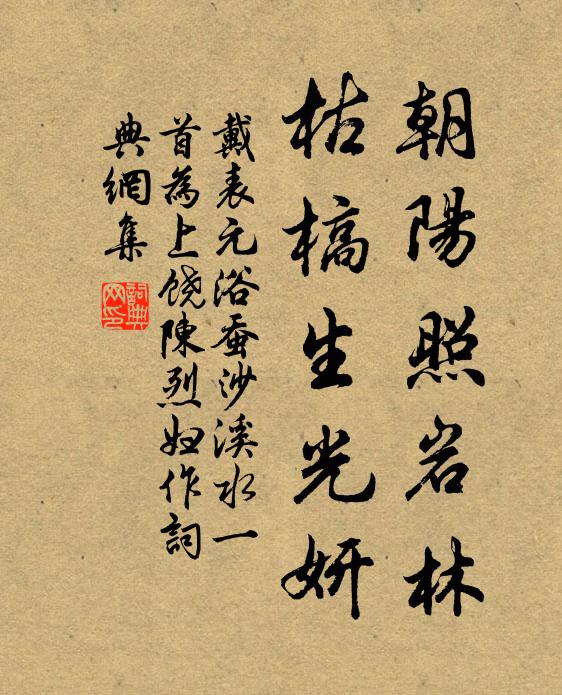 朝陽照岩林
枯槁生光妍
戴表元浴蚕沙溪水一
首為上饶陳烈妇作詞
典網集
詞典网印